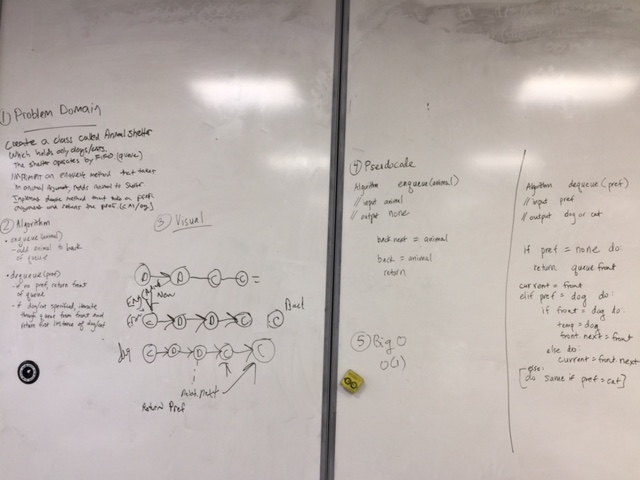 1) Problem Domain
Create a class called Animal Shelter
Which holds only dogs/cats
The shelter operates by FIFO (queue)
Implement an enqueue method that takes
in animal argument, adds animal to shelter
Implement dequeue method that take a pref
argument and returns the pref (cat/dog)
2 Algorithm
• enqueue(animal)
- add animal to back
of queue
• dequeue(pref)
- if no pref, return front
of queue
- if dog/cat specified, iterate
through queue from front and
return first instance of dog/cat
3 Visual
D D C C =
New
C D D C C Back
dog C D D C C
Return Pref
4 Pseudocode
Algorithm enqueue(animal)
// input animal
// output none
back.next = animal
back = animal
return
5 Big O
O(1)
Algorithm dequeue (pref)
// input pref
// output dog or cat
if pref = none do:
return queue front
current = front
elif pref = dog do:
if front = dog do:
temp = dog
front.next = front
else do:
current = front.next
else:
[do same if pref = cat]